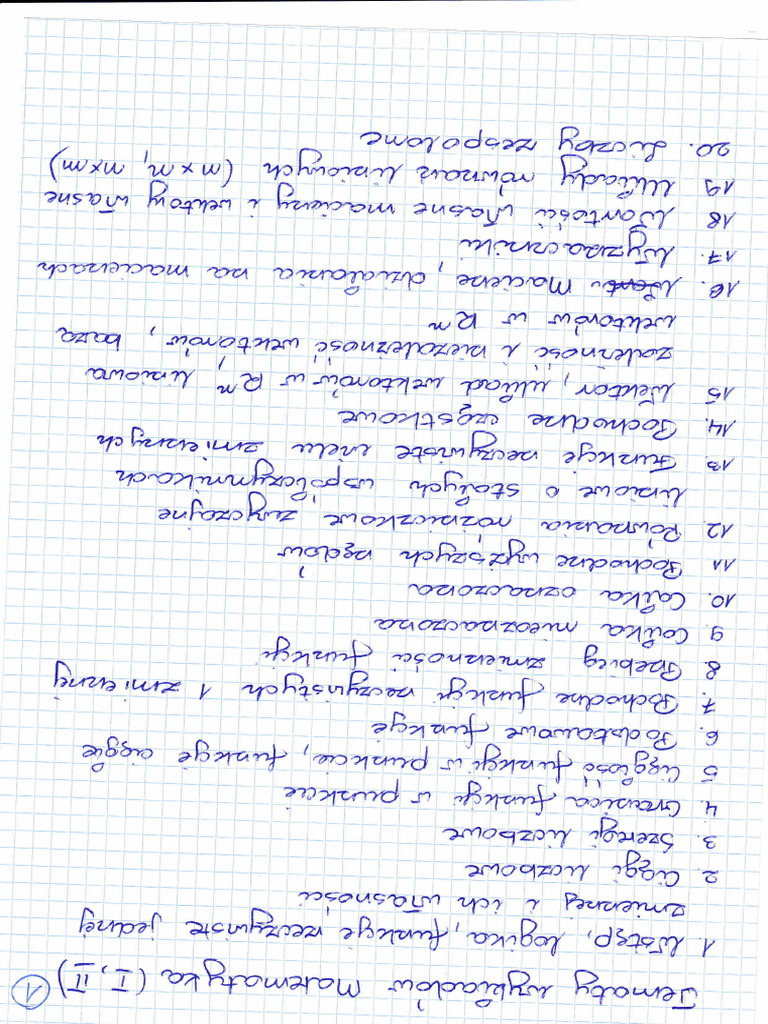 Tematy wykładów Matematyka (I, II) 1
1. Wstęp, logika, funkcje rzeczywiste jednej
zmiennej i ich własności
2. Ciągi liczbowe
3. Szeregi liczbowe
4. Granica funkcji w punkcie
5 Ciągłość funkcji w punkcie, funkcje ciągłe
6. Podstawowe funkcje
7. Pochodne funkcji rzeczywistych 1 zmiennej
8. Przebieg zmienności funkcji
9. Całka nieoznaczona
10. Całka oznaczona
11 Pochodne wyższych rzędów
12 Równania różniczkowe zwyczajne
liniowe o stałych współczynnikach
13. Funkcje rzeczywiste wielu zmiennych
14. Pochodne cząstkowe
15 Wektor, układ wektorów w Rⁿ, liniowa
zależność i niezależność wektorów, baza
wektorów w Rⁿ
16. Macierze, działania na macierzach
17. Wyznaczniki
18 Wartości własne macierzy i wektory własne
19 Układy równań liniowych (n×n, m×n)
20. Liczby zespolone